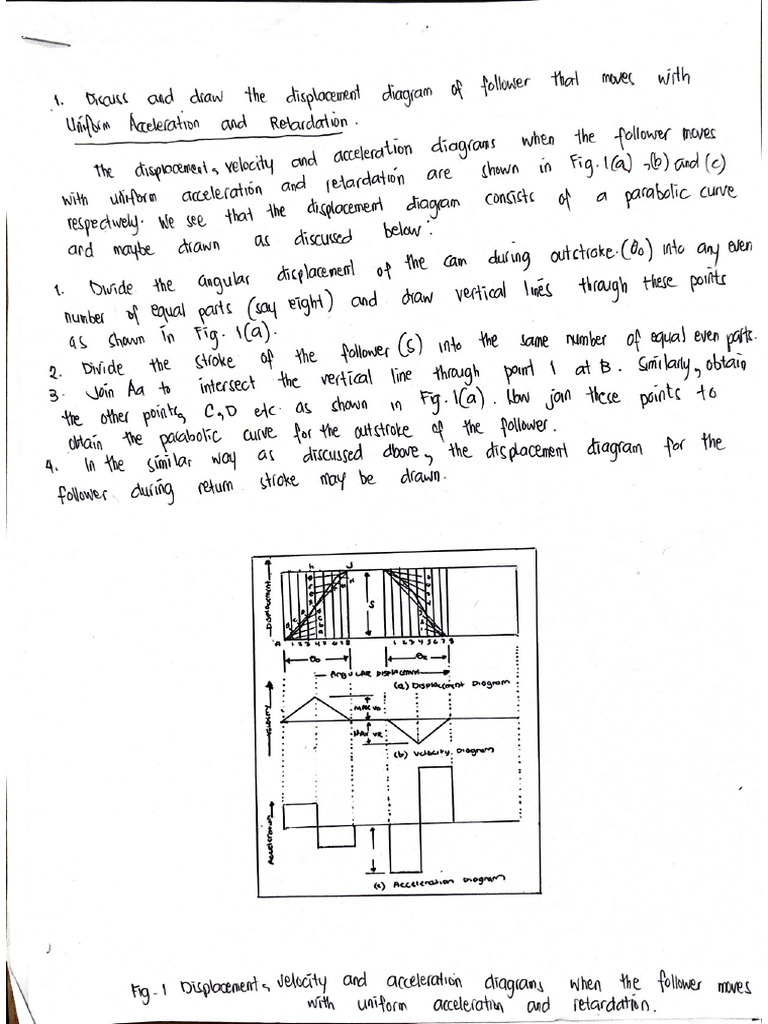 1. Discuss and draw the displacement diagram of follower that moves with
Uniform Acceleration and Retardation.
The displacement, velocity and acceleration diagrams when the follower moves
with uniform acceleration and retardation are shown in Fig. 1(a), (b) and (c)
respectively. We see that the displacement diagram consists of a parabolic curve
and maybe drawn as discussed below:
1. Divide the angular displacement of the cam during outstroke (θo) into any even
number of equal parts (say eight) and draw vertical lines through these points
as shown in Fig. 1(a).
2. Divide the stroke of the follower (S) into the same number of equal even parts.
3. Join Aa to intersect the vertical line through point 1 at B. Similarly, obtain
the other points, C, D etc. as shown in Fig. 1(a). Now join these points to
obtain the parabolic curve for the outstroke of the follower.
4. In the similar way as discussed above, the displacement diagram for the
follower during return stroke may be drawn.
Displacement
h J
S
A 1 2 3 4 5 6 7 8
1 2 3 4 5 6 7 8
θo
θR
Angular Displacement
(a) Displacement Diagram
Velocity
Max Vo
Max VR
(b) Velocity Diagram
Acceleration
(c) Acceleration Diagram
Fig. 1 Displacement, velocity and acceleration diagrams when the follower moves
with uniform acceleration and retardation.